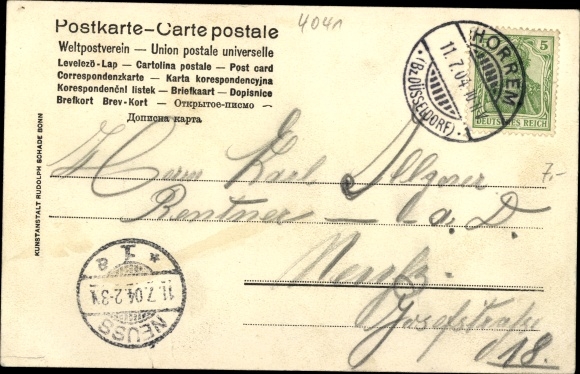 Postkarte–Carte postale
Weltpostverein – Union postale universelle
Levelező-Lap – Cartolina postale – Post card
Correspondenzkarte – Karta korespondencyjna
Korespondenční listek – Briefkaart – Dopisnice
Brefkort Brev-Kort – Открытое-письмо –
Дописна карта
404n
HORREM
11.7.04
(Bz. DÜSSELDORF)
5
DEUTSCHES REICH
7.-
KUNSTANSTALT RUDOLPH SCHADE BONN
Herrn Karl
Rentner – a. D.
Neuß.
Josefstraße
18.
* 1 a
11.7.04.2-3N
NEUSS